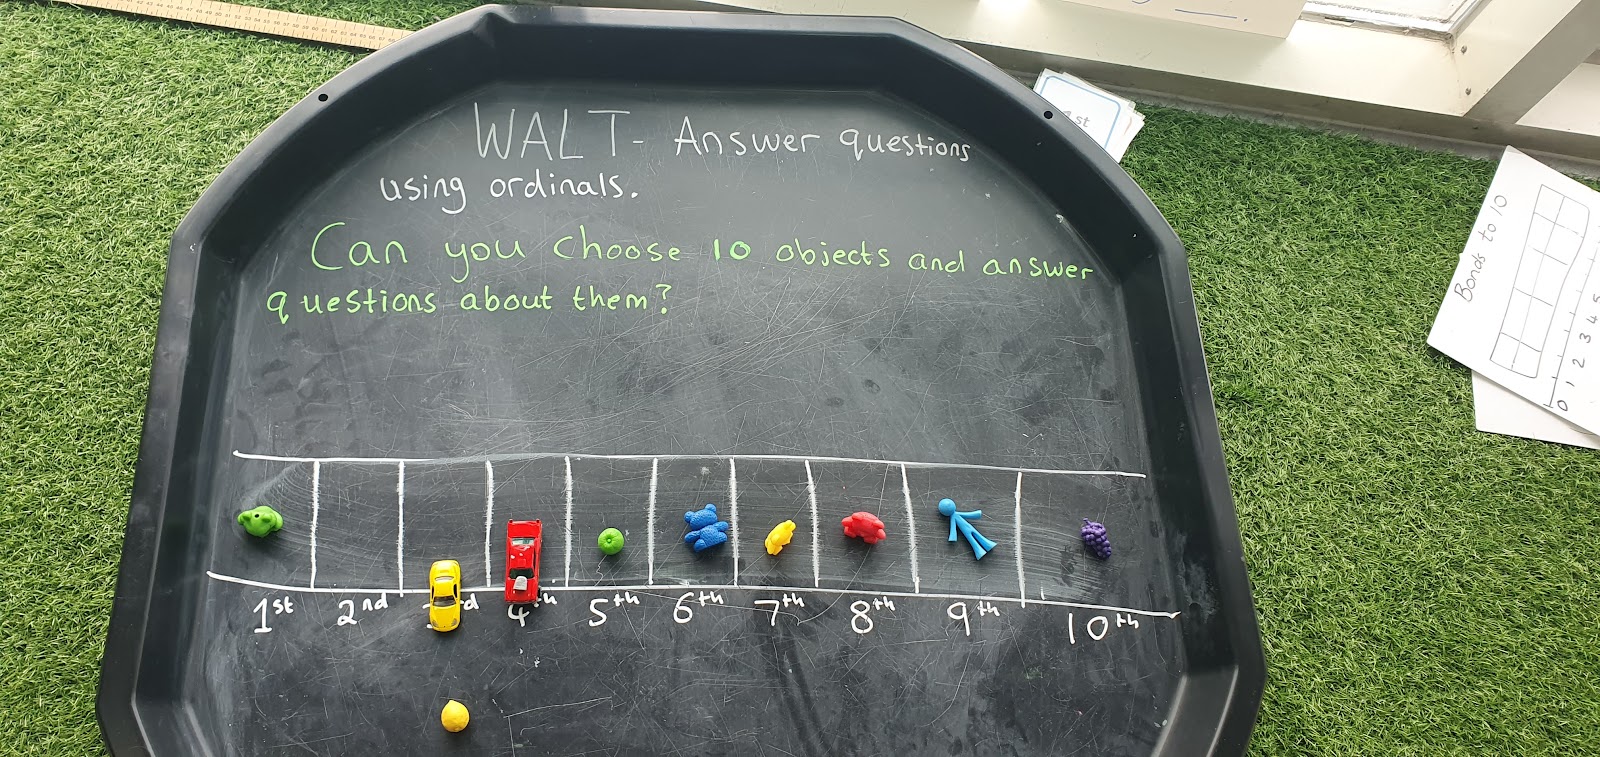 WALT- Answer questions
using ordinals.
Can you choose 10 objects and answer
questions about them?
1st 2nd 4th 5th 6th 7th 8th 9th 10th
st
Bonds to 10
0 1 2 3 4 5